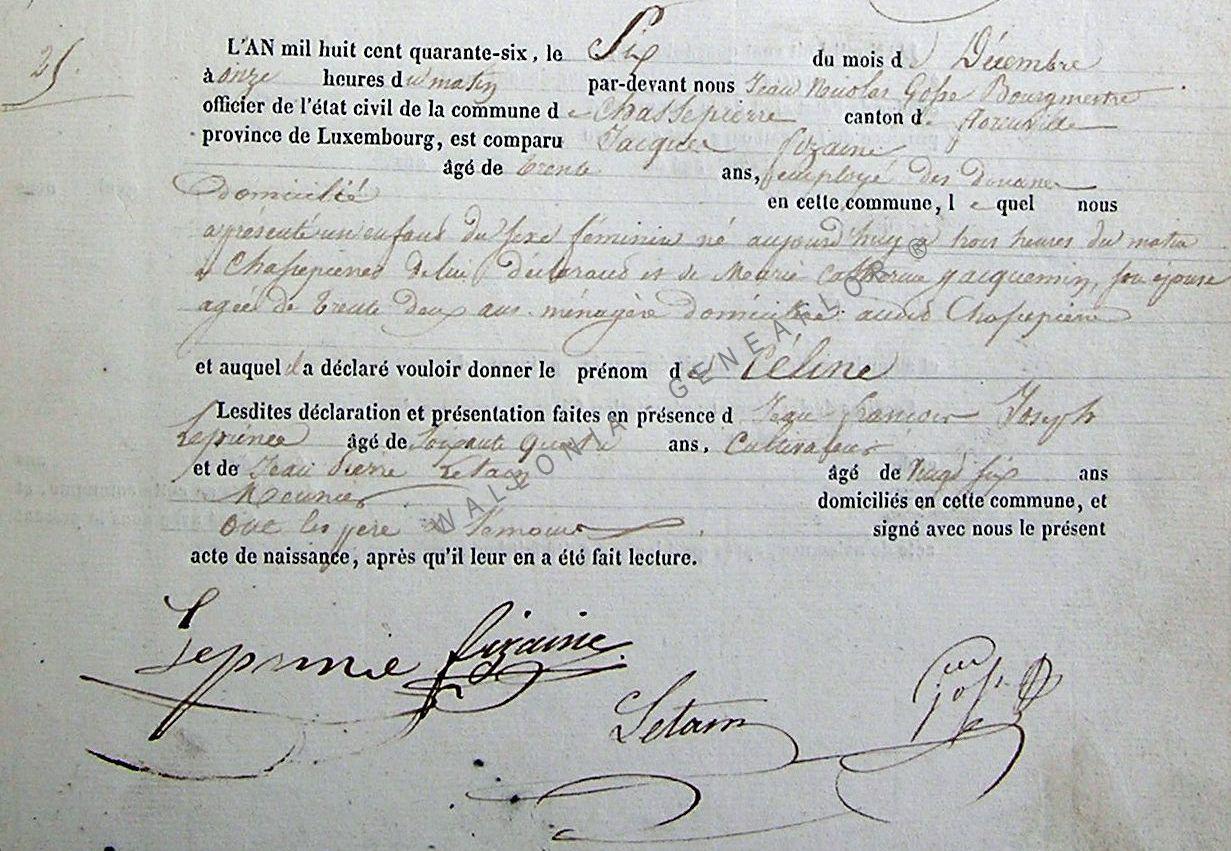 25.
L'AN mil huit cent quarante-six, le Six du mois d Décembre
à onze heures du matin par-devant nous Jean Nicolas Goße Bourgmestre
officier de l'état civil de la commune de Chassepierre canton de Florenville
province de Luxembourg, est comparu Jacques Fizaine
âgé de trente ans, employé des douanes
domicilié en cette commune, lequel nous
a présenté un enfant du sexe féminin né aujourd'huy à trois heures du matin
à Chaßepierre de lui déclarant et de Marie Catherine Jacquemin, son épouse
agée de trente deux ans ménagère domiciliée audit Chaßepierre
et auquel il a déclaré vouloir donner le prénom de Céline
Lesdites déclaration et présentation faites en présence d Jean françois Joseph
Leprince âgé de soixante ans, Cultivateur
et de Jean Pierre Letain âgé de vingt six ans
Meunier domiciliés en cette commune, et
ont les père & témoins signé avec nous le présent
acte de naissance, après qu'il leur en a été fait lecture.
Leprince fizaine.
Letain Goße
WALLONIA GENEALOR ®